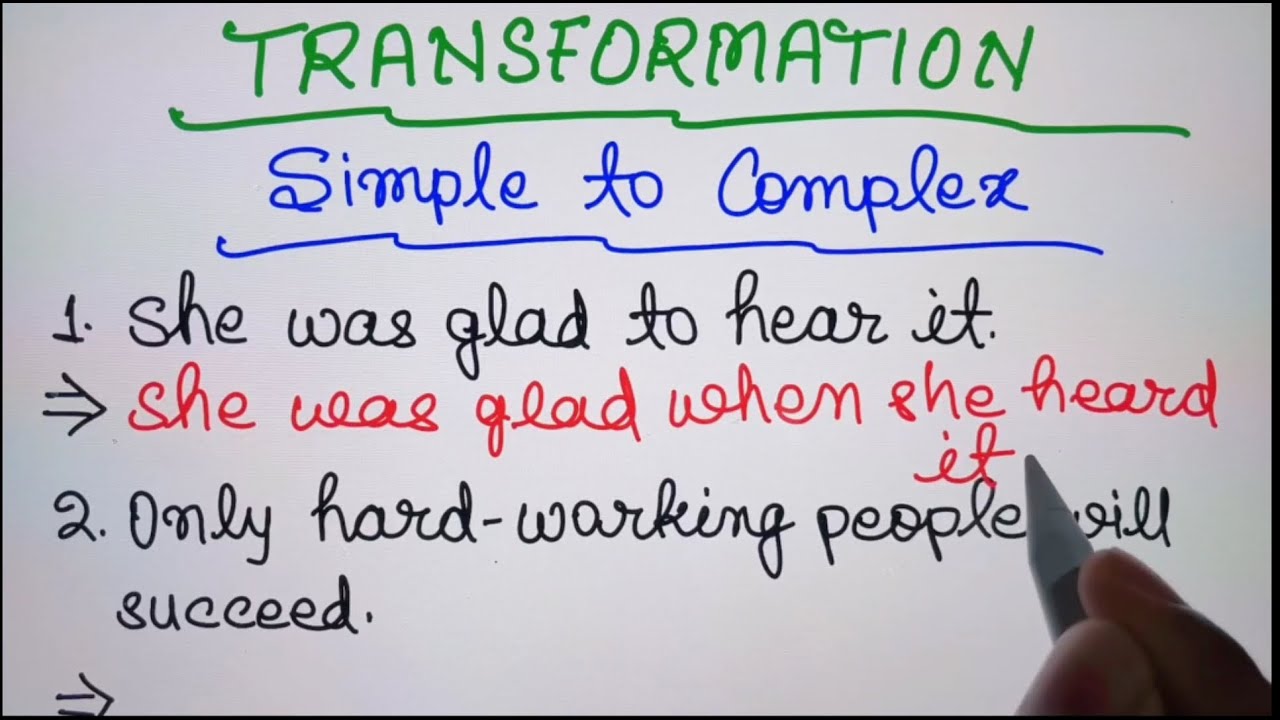 TRANSFORMATION
Simple to Complex
1. She was glad to hear it.
⇒ She was glad when she heard
it
2. Only hard-working people will
succeed.
⇒